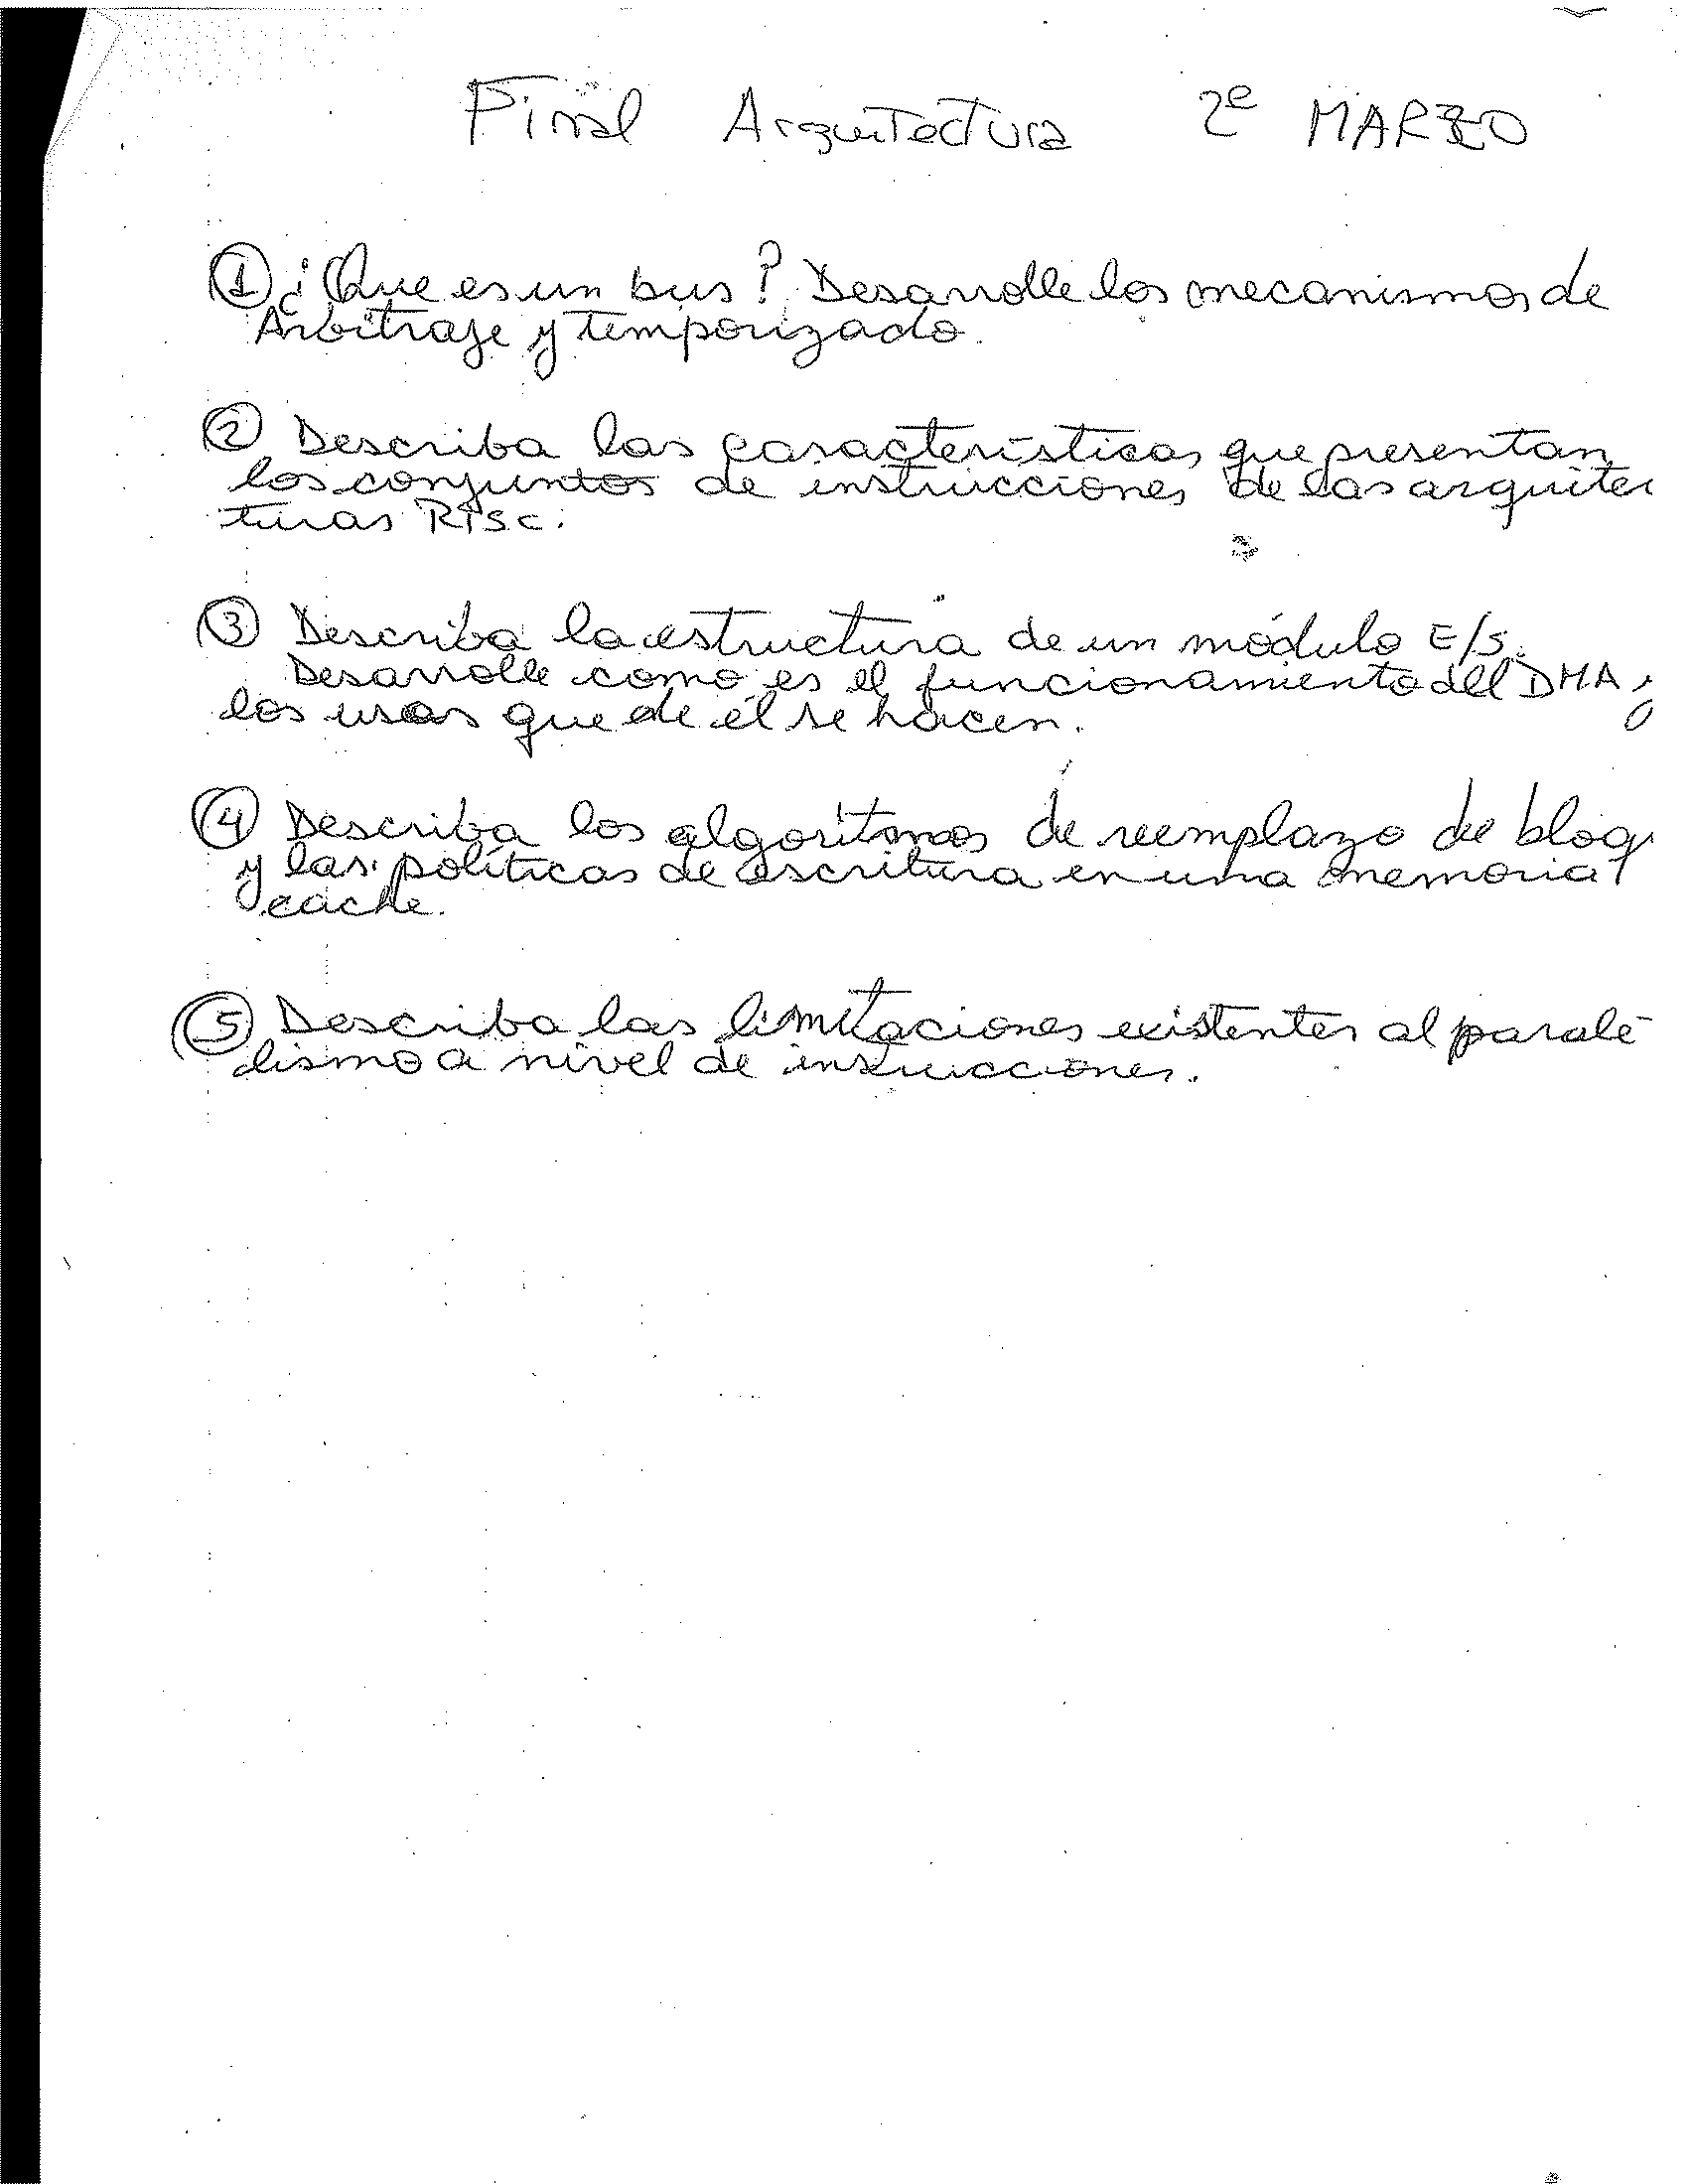 Final Arquitectura 2º MARZO
① ¿Que es un bus? Desarrolle los mecanismos de
Arbitraje y temporizado.
② Describa las características que presentan
los conjuntos de instrucciones de las arquitec
turas RISC.
③ Describa la estructura de un módulo E/S.
Desarrolle como es el funcionamiento del DMA y
los usos que de él se hacen.
④ Describa los algoritmos de reemplazo de bloqu
y las políticas de escritura en una memoria
cache.
⑤ Describa las limitaciones existentes al parale
lismo a nivel de instrucciones.